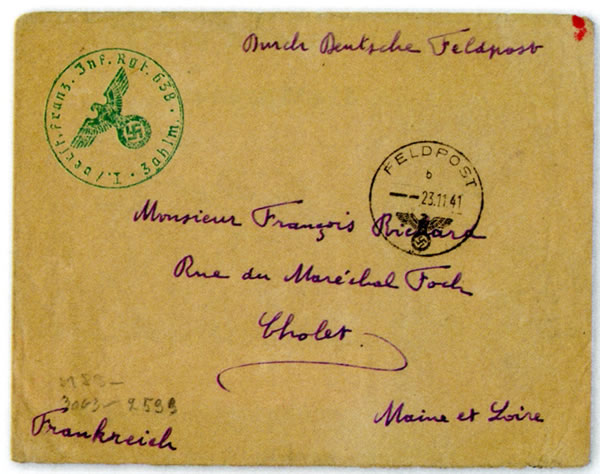 Durch Deutsche Feldpost
I./verst. Franz. Inf. Rgt. 638 · Zahlm.
FELDPOST
b
23.11.41
Monsieur François Richard
Rue du Maréchal Foch
Cholet
Maine et Loire
Frankreich